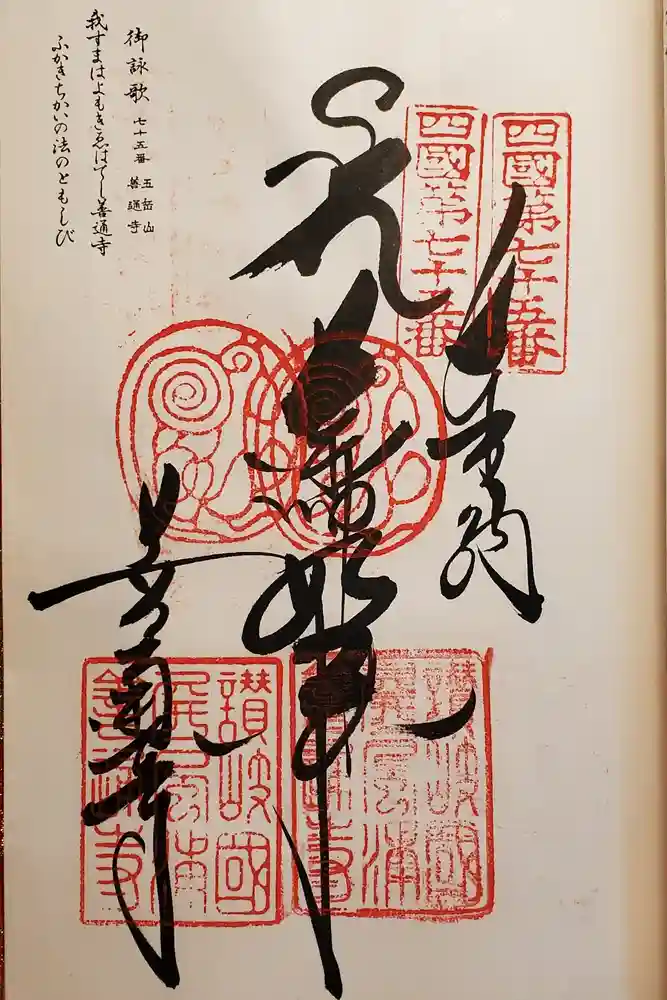 四國第七十五番
四國第七十五番
奉納
薬師如来
善通寺
讃岐國
屏風浦
善通寺
讃岐國
屏風浦
善通寺
御詠歌 七十五番 五岳山 善通寺
我すまはよもきゑはてし善通寺
ふかきちかいの法のともしび